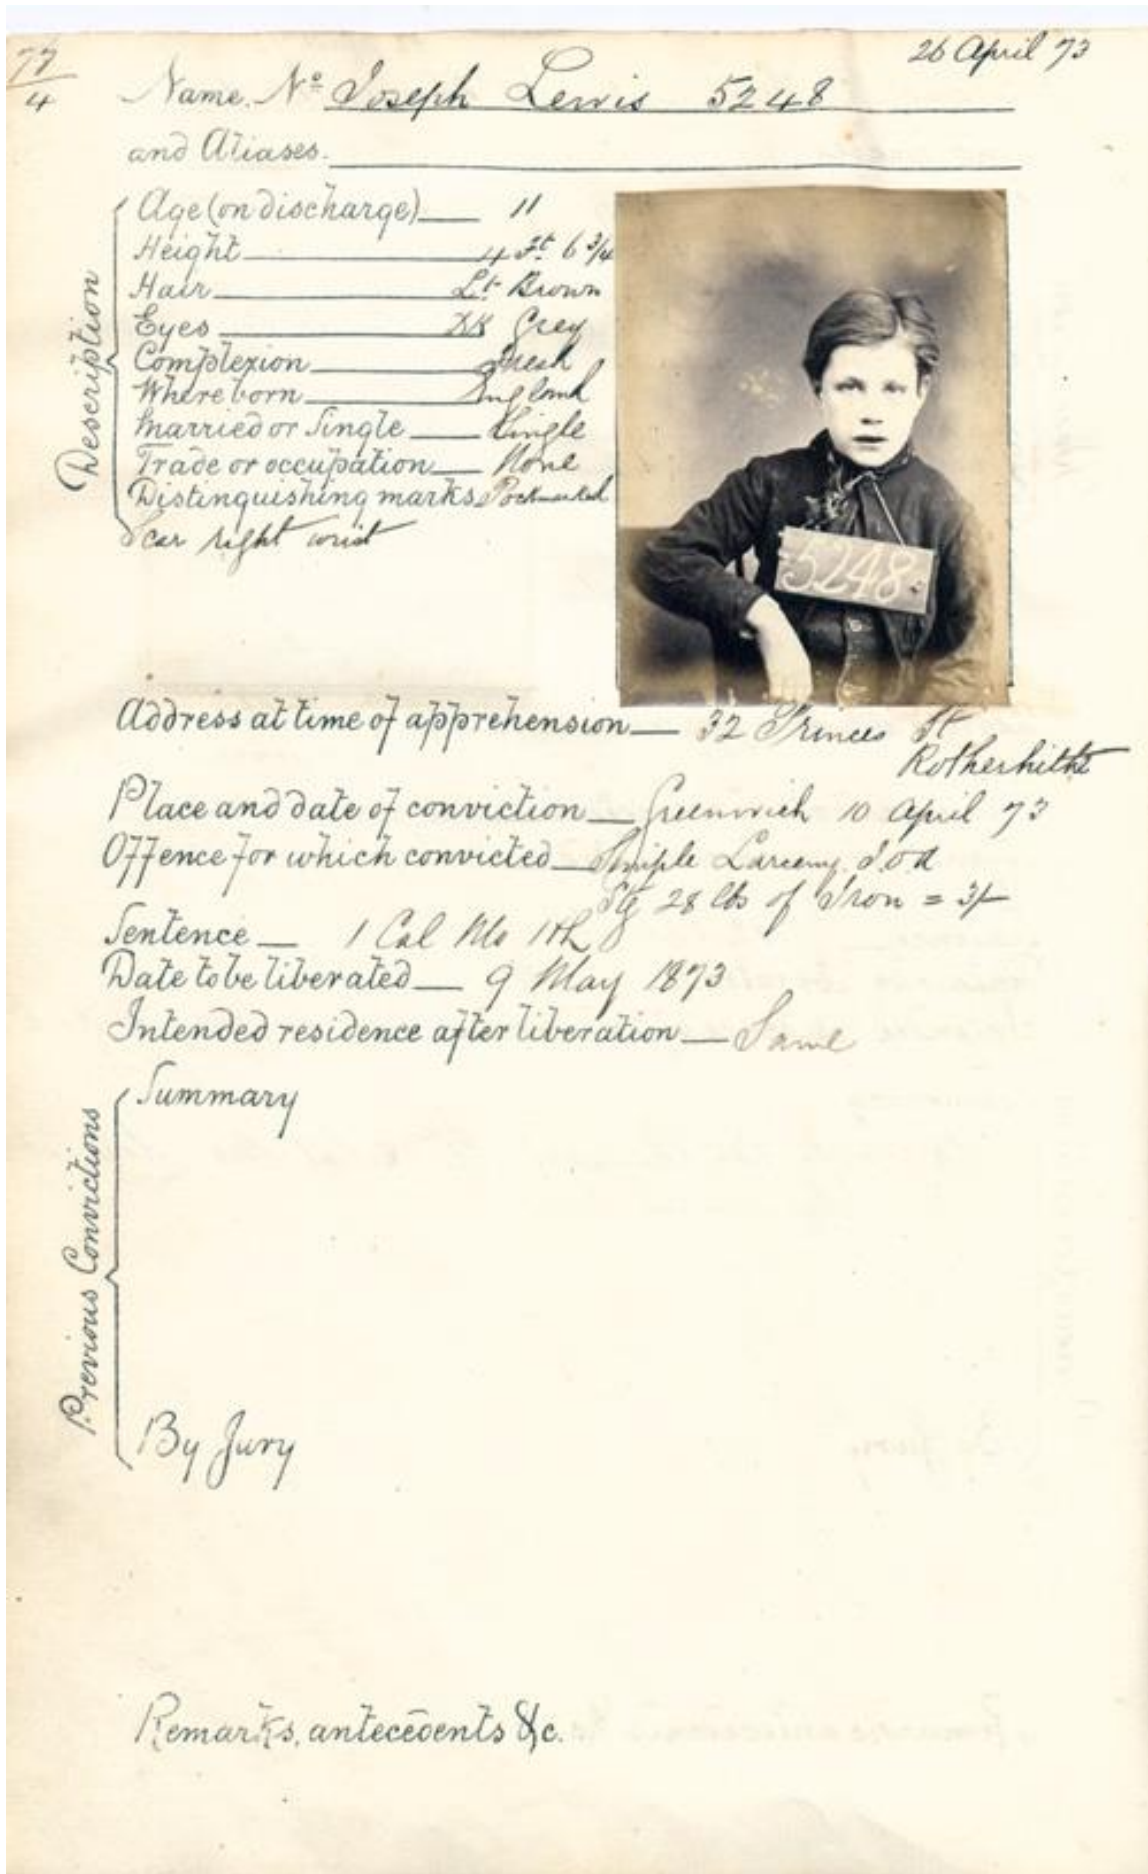 77
4
26 April 73
Name. No Joseph Lewis 5248
and Aliases.
Description
Age (on discharge) 11
Height 4 Ft 6 3/4
Hair Lt Brown
Eyes Dk Grey
Complexion Fresh
Where born England
Married or Single Single
Trade or occupation None
Distinguishing marks Pockmarked
Scar right wrist
5248
Address at time of apprehension 32 Princes St
Rotherhithe
Place and date of conviction Greenwich 10 April 73
Offence for which convicted Simple Larceny
Stg 28 lbs of Iron = 3/-
Sentence 1 Cal Mo
Date to be liberated 9 May 1873
Intended residence after liberation Same
Previous Convictions
Summary
By Jury
Remarks, antecedents &c.